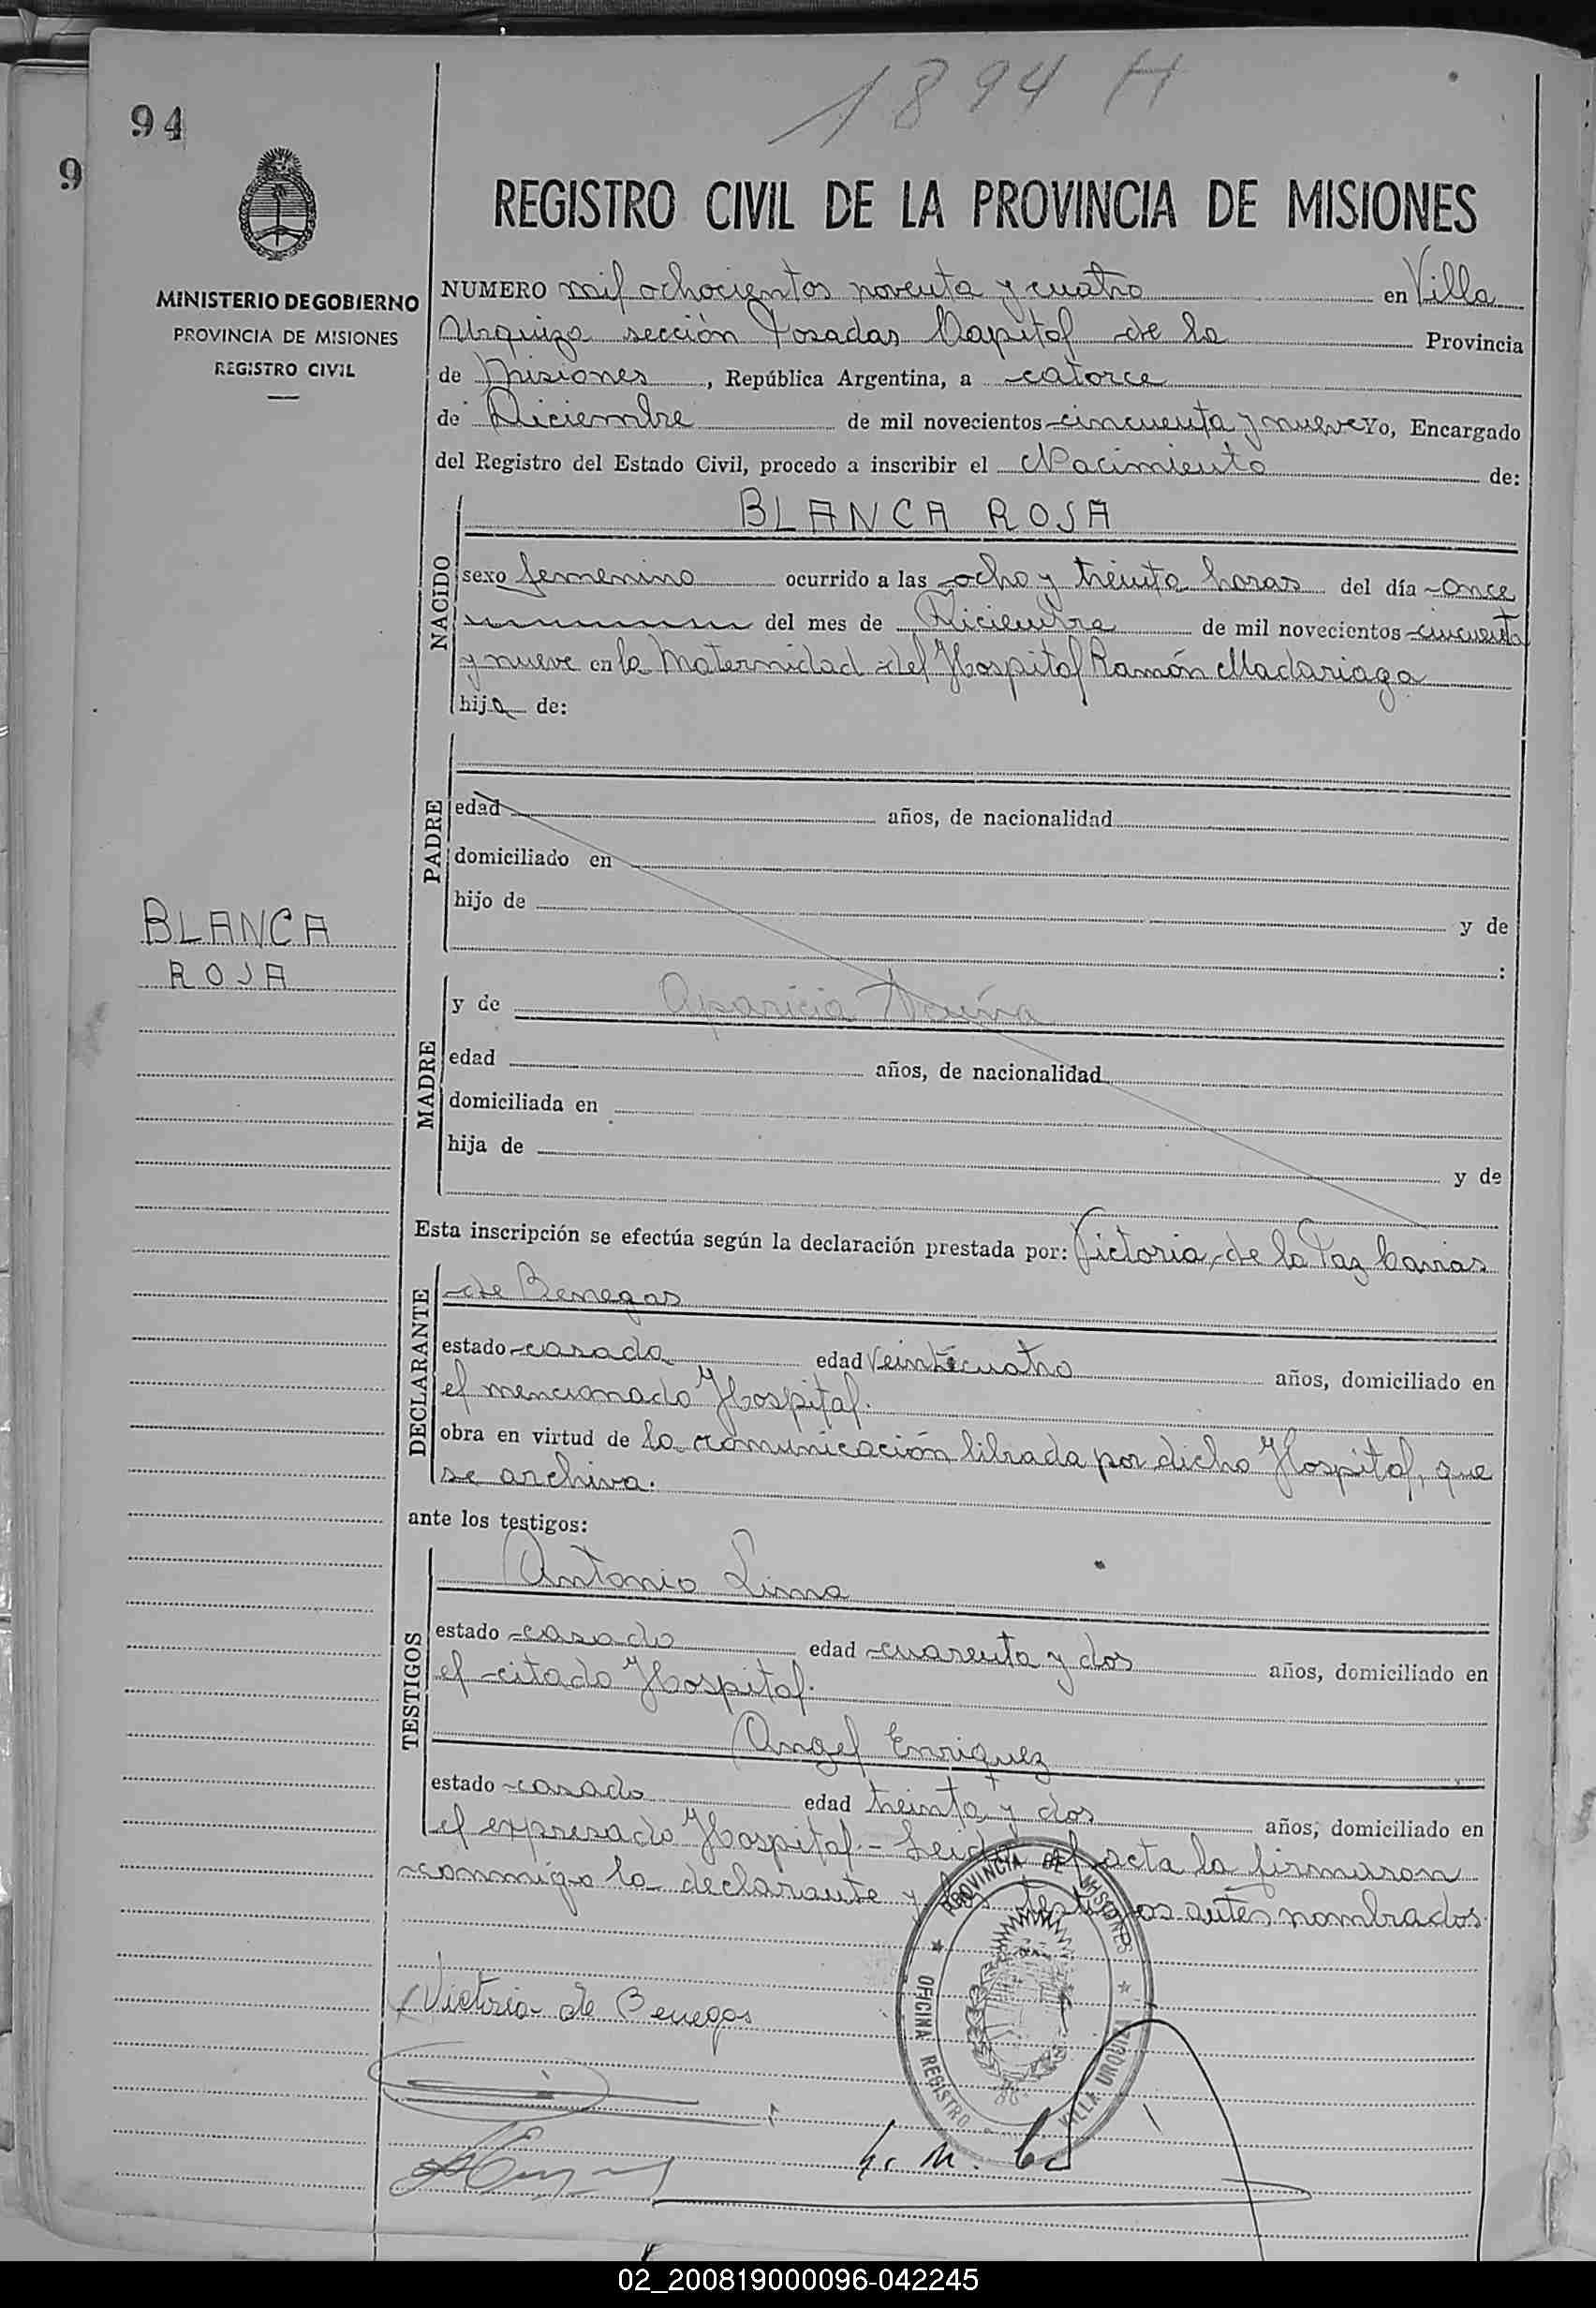 1894 H
94
9
MINISTERIO DE GOBIERNO
PROVINCIA DE MISIONES
REGISTRO CIVIL
REGISTRO CIVIL DE LA PROVINCIA DE MISIONES
NUMERO mil ochocientos noventa y cuatro en Villa
Urquiza sección Posadas Capital de la Provincia
de Misiones, República Argentina, a catorce
de Diciembre de mil novecientos cincuenta y nueve Yo, Encargado
del Registro del Estado Civil, procedo a inscribir el Nacimiento de:
NACIDO
BLANCA ROSA
sexo femenino ocurrido a las ocho y treinta horas del día once
del mes de Diciembre de mil novecientos cincuenta
y nueve en la Maternidad del Hospital Ramón Madariaga
hija de:
PADRE
edad años, de nacionalidad
domiciliado en
hijo de y de
:
BLANCA
ROSA
MADRE
y de Aparicia
edad años, de nacionalidad
domiciliada en
hija de y de
Esta inscripción se efectúa según la declaración prestada por: Victoria de la Paz
DECLARANTE
de Benegas
estado casada edad veinticuatro años, domiciliado en
el mencionado Hospital.
obra en virtud de la comunicación librada por dicho Hospital, que
se archiva.
ante los testigos:
TESTIGOS
Antonio Lima
estado casado edad cuarenta y dos años, domiciliado en
el citado Hospital.
Angel Enriquez
estado casado edad treinta y dos años, domiciliado en
el expresado Hospital.- Leida el acta la firmaron
conmigo la declarante y los testigos antes nombrados
PROVINCIA DE MISIONES
OFICINA REGISTRO
VILLA URQUIZA
Victoria de Benegas
02_200819000096-042245